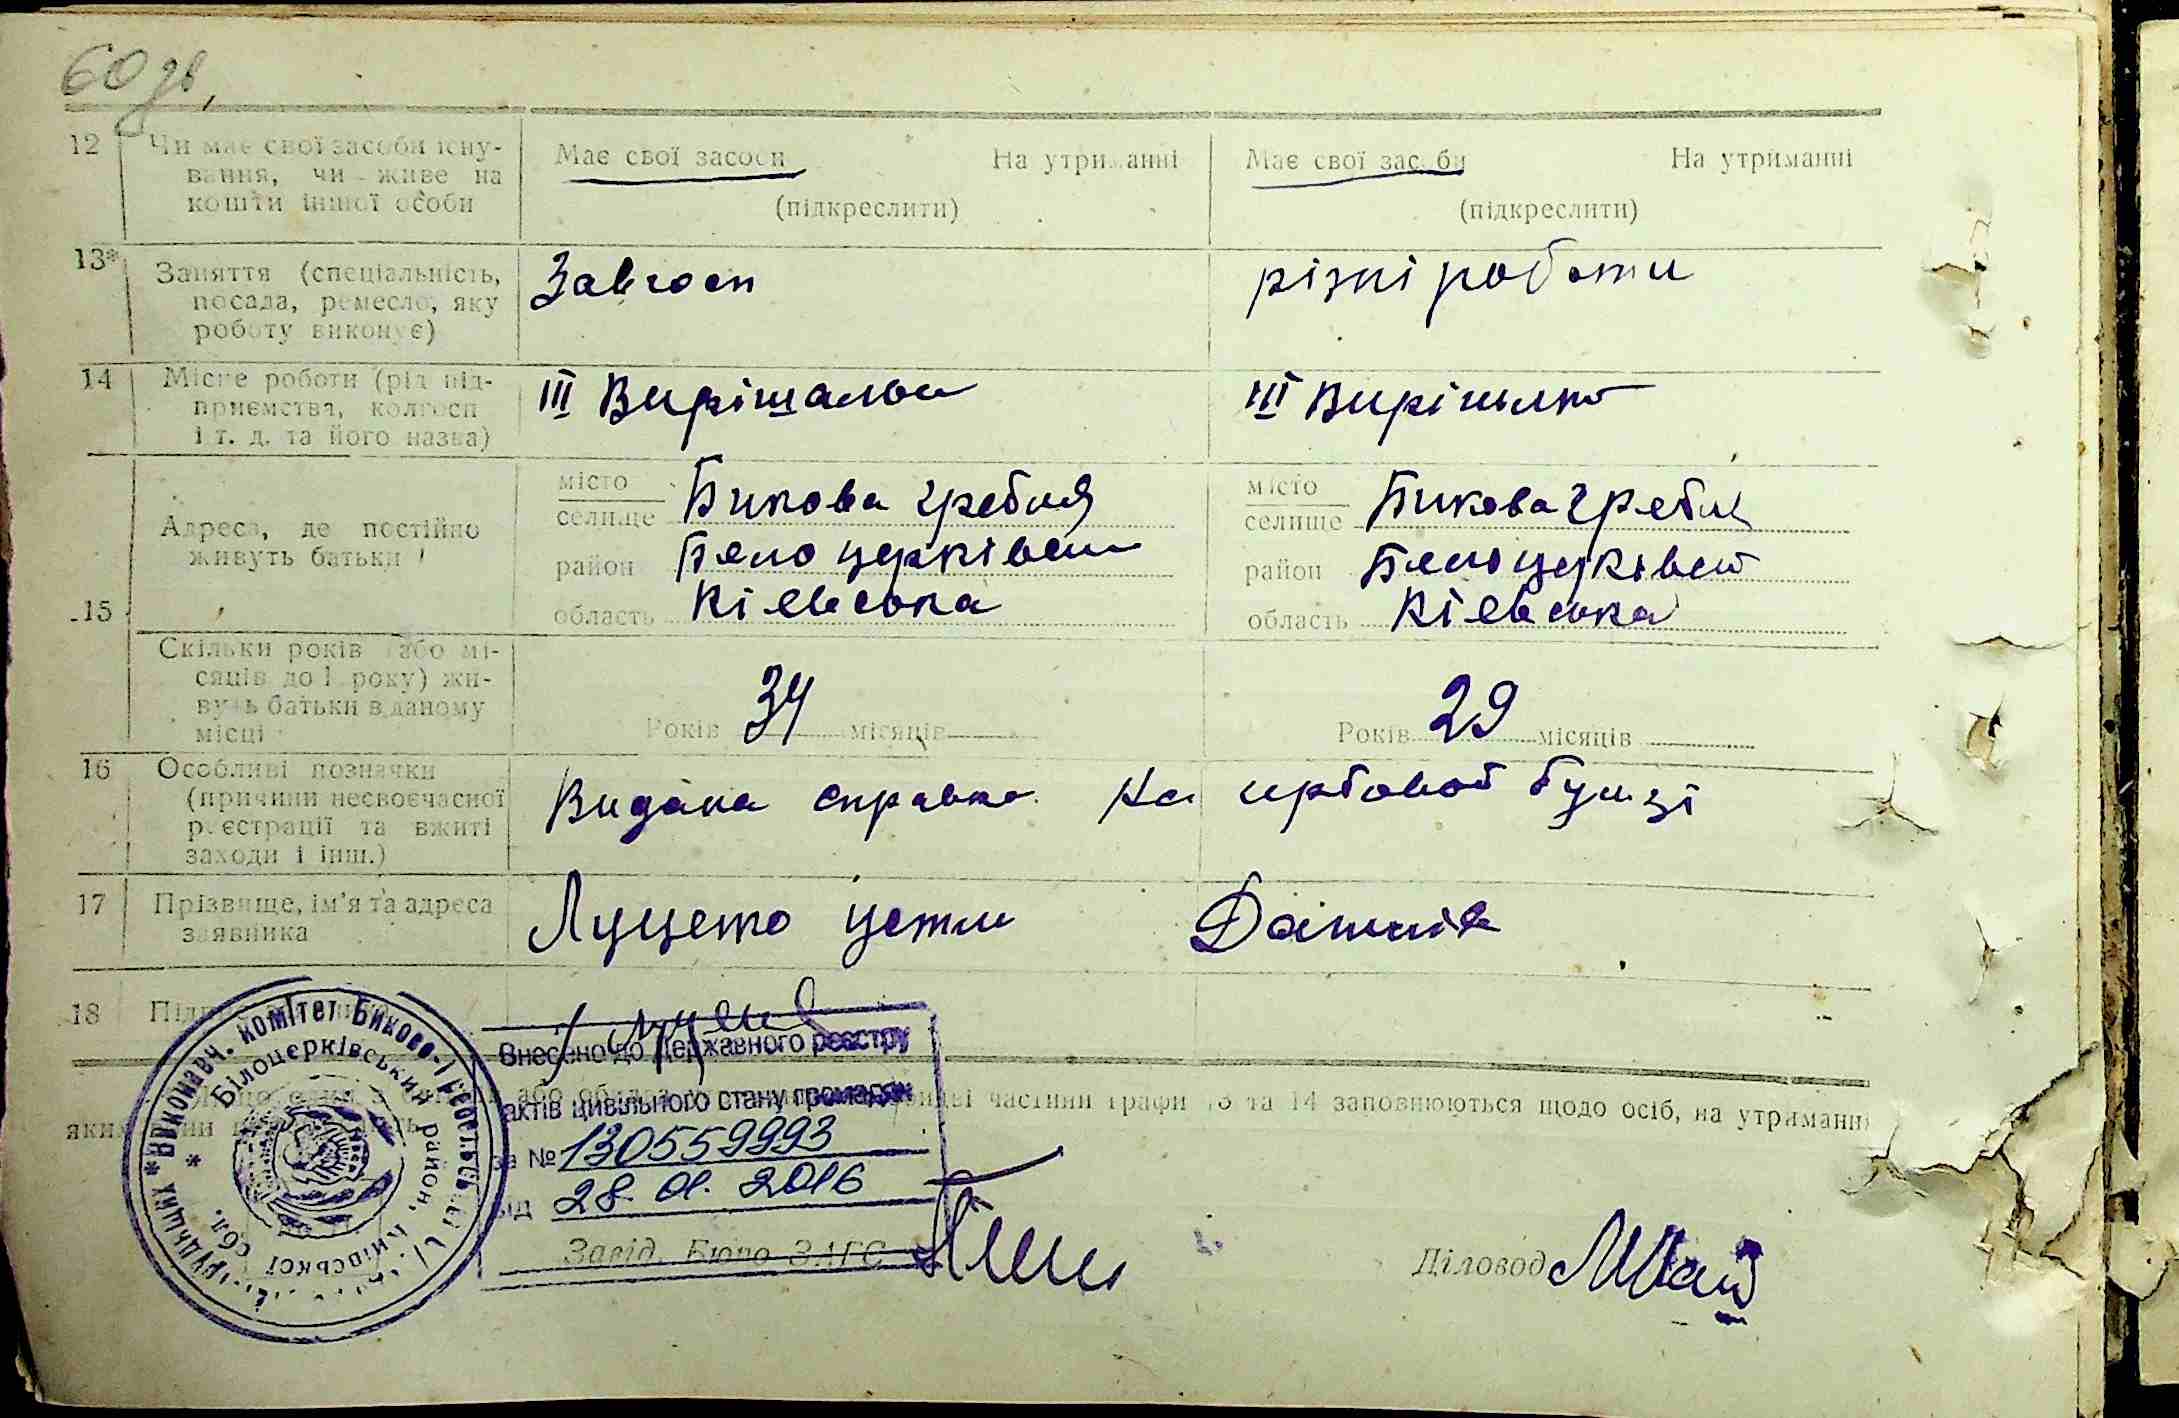 60 зв.
12 Чи має свої засоби існу-
вання, чи живе на
кошти іншої особи
Має свої засоби На утриманні
(підкреслити)
Має свої засоби На утриманні
(підкреслити)
13* Заняття (спеціальність,
посада, ремесло, яку
роботу виконує)
Завгосп
різні роботи
14 Місце роботи (рід під-
приємства, колгосп
і т. д. та його назва)
III Вирішальн
III Вирішально
15 Адреса, де постійно
живуть батьки
місто
селище Бикова гребля
район Бело церківськ
область Кіевська
місто
селище Бикова Гребля
район
область Кіевська
Скільки років (або мі-
сяців до 1 року) жи-
вуть батьки в даному
місці
Років 34 місяців
Років 29 місяців
16 Особливі позначки
(причини несвоєчасної
реєстрації та вжиті
заходи і інш.)
Видана справка На гербовой бумзі
17 Прізвище, ім'я та адреса
заявника
Луценко
18
Внесено до Державного реєстру
актів цивільного стану громадян
за № 130559993
від 28.01.2016
частини графи 13 та 14 заповнюються щодо осіб, на утриманні
Завід. Бюро ЗАГС
Діловод
Виконавч. комітет Биково-Гребельської
Білоцерківський район, Київської обл.